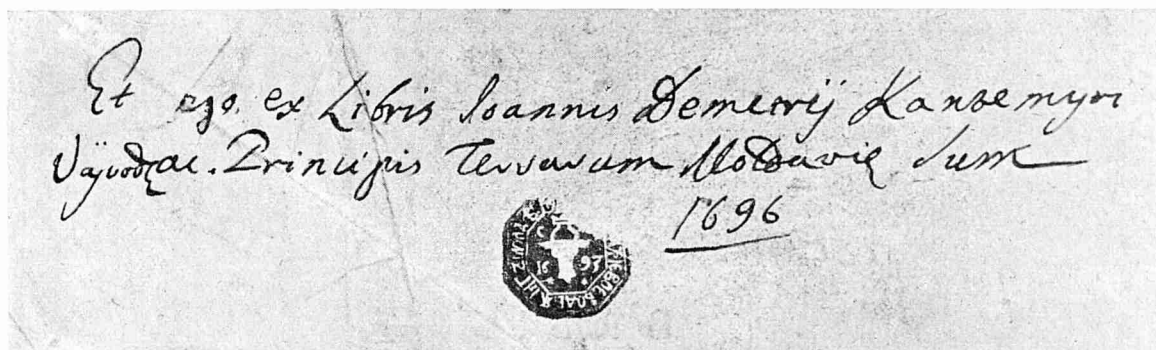 Et ego ex Libris Ioannis Demetrij Kantemyri
Vajvodzae. Principis Terrarum Moldavię Sum
1696
1693